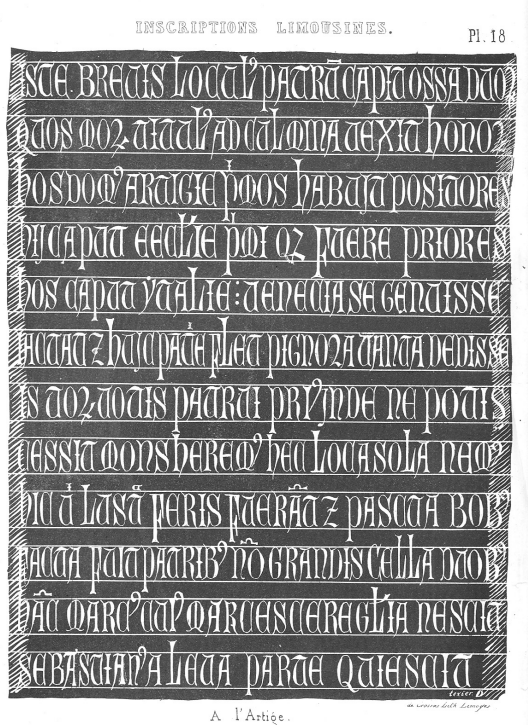 INSCRIPTIONS LIMOUSINES.
Pl. 18
ISTE. BREVIS LOCUL' PATRŪ CAPIT OSSA DUOꝜ
QUOS MOꝜ TITUL' AD CULMINA VEXIT HONOꝜ
HOS DOM' ARTIGIE PMOS HABUIT POSITORES
HII CAPUT ECCLIE PMI QZ FUERE PRIORES
HOS CAPUT YTALIE : VENECIA SE GENUISSE
IACTAT Z HUIC PATIE FLET PIGNORA TANTA DEDISSE
IS
NE POTIS
CESSIT MONS HEREM' HEC LOCA SOLA NEM'
HIC LUSTA FERIS FUERĀT Z PASCUA BOB'
FACTA FUIT PATRIB' NŌ GRANDIS CELLA DUOB'
HĀC MARC' CUI' MARCESCERE GLIA NESCIT
SEBASTIAN' A LEVA PARTE QUIESCIT
texier D
de crocens lith Limoges
A l'Artige.